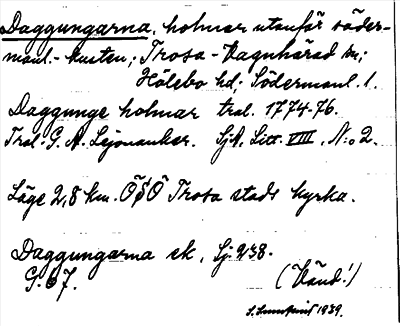 Daggungarna, holmar utanför söder-
manl.-kusten; Trosa-Vagnhärad sn;
Hölebo hd; Södermanl. l.
Daggunge holmar tral. 1774-76.
Tral. G. A. Lejonanker. SjA, Litt. VIII, N:o 2.
Läge 2,8 km. ÖSÖ Trosa stads kyrka.
Daggungarna sk, Sj. 238.
G. 67.
(Vänd!)
1939.